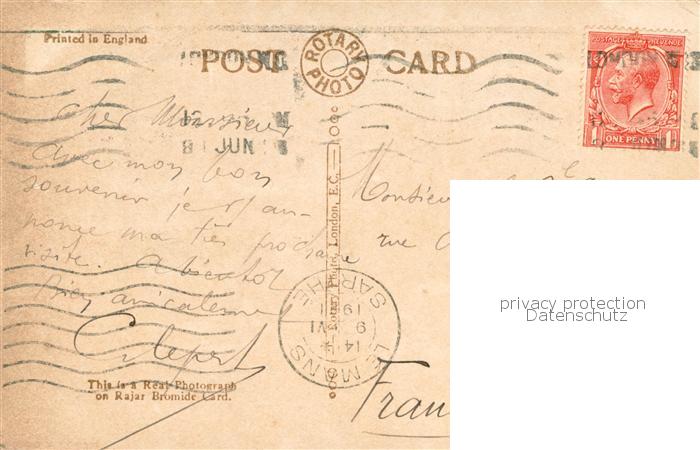 Printed in England
POST CARD
ROTARY PHOTO
POSTAGE REVENUE
ONE PENNY
1 1
JUN
Cher Monsieur
avec mon bon
souvenir je
nonce ma très prochaine
visite. A bientôt
bien amicalement
Monsieur
rue
France
Rotary Photo, London, E.C.
LE MANS
SARTHE
14
9 VI
19
This is a Real Photograph
on Rajar Bromide Card.
privacy protection
Datenschutz